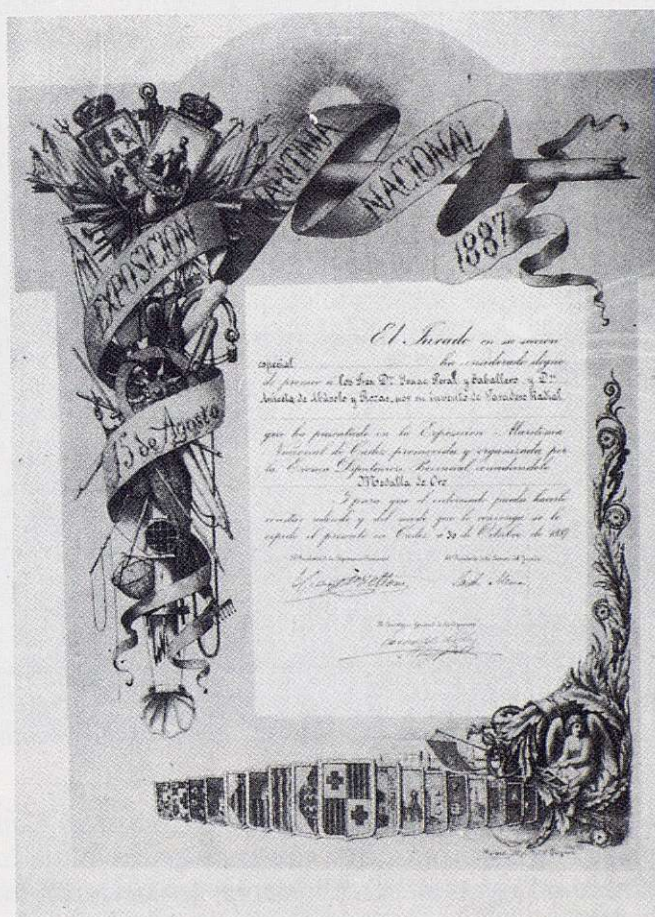 EXPOSICION
MARITIMA
NACIONAL
1887
15 de Agosto
El Jurado en su sección
especial ha considerado digno
de premio a los Sres. Dn. Isaac Peral y Caballero y Dn.
Aniceto de Abásolo y Rozas, por su invento de Varadero Radial
que ha presentado en la Exposición Maritima
Nacional de Cadiz promovida y organizada por
la Excma Diputacion Provincial
Medalla de Oro
Y para que el interesado pueda hacerlo
constar cuando y del modo que le convenga se le
expide el presente en Cadiz a 30 de Octubre de 1887